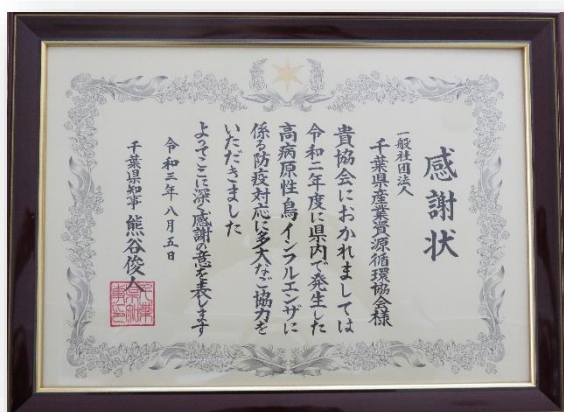 感謝状
一般社団法人
千葉県産業資源循環協会様
貴協会におかれましては
令和二年度に県内で発生した
高病原性鳥インフルエンザに
係る防疫対応に多大なご協力を
いただきました
よってここに深く感謝の意を表します
令和三年八月五日
千葉県知事 熊谷俊人